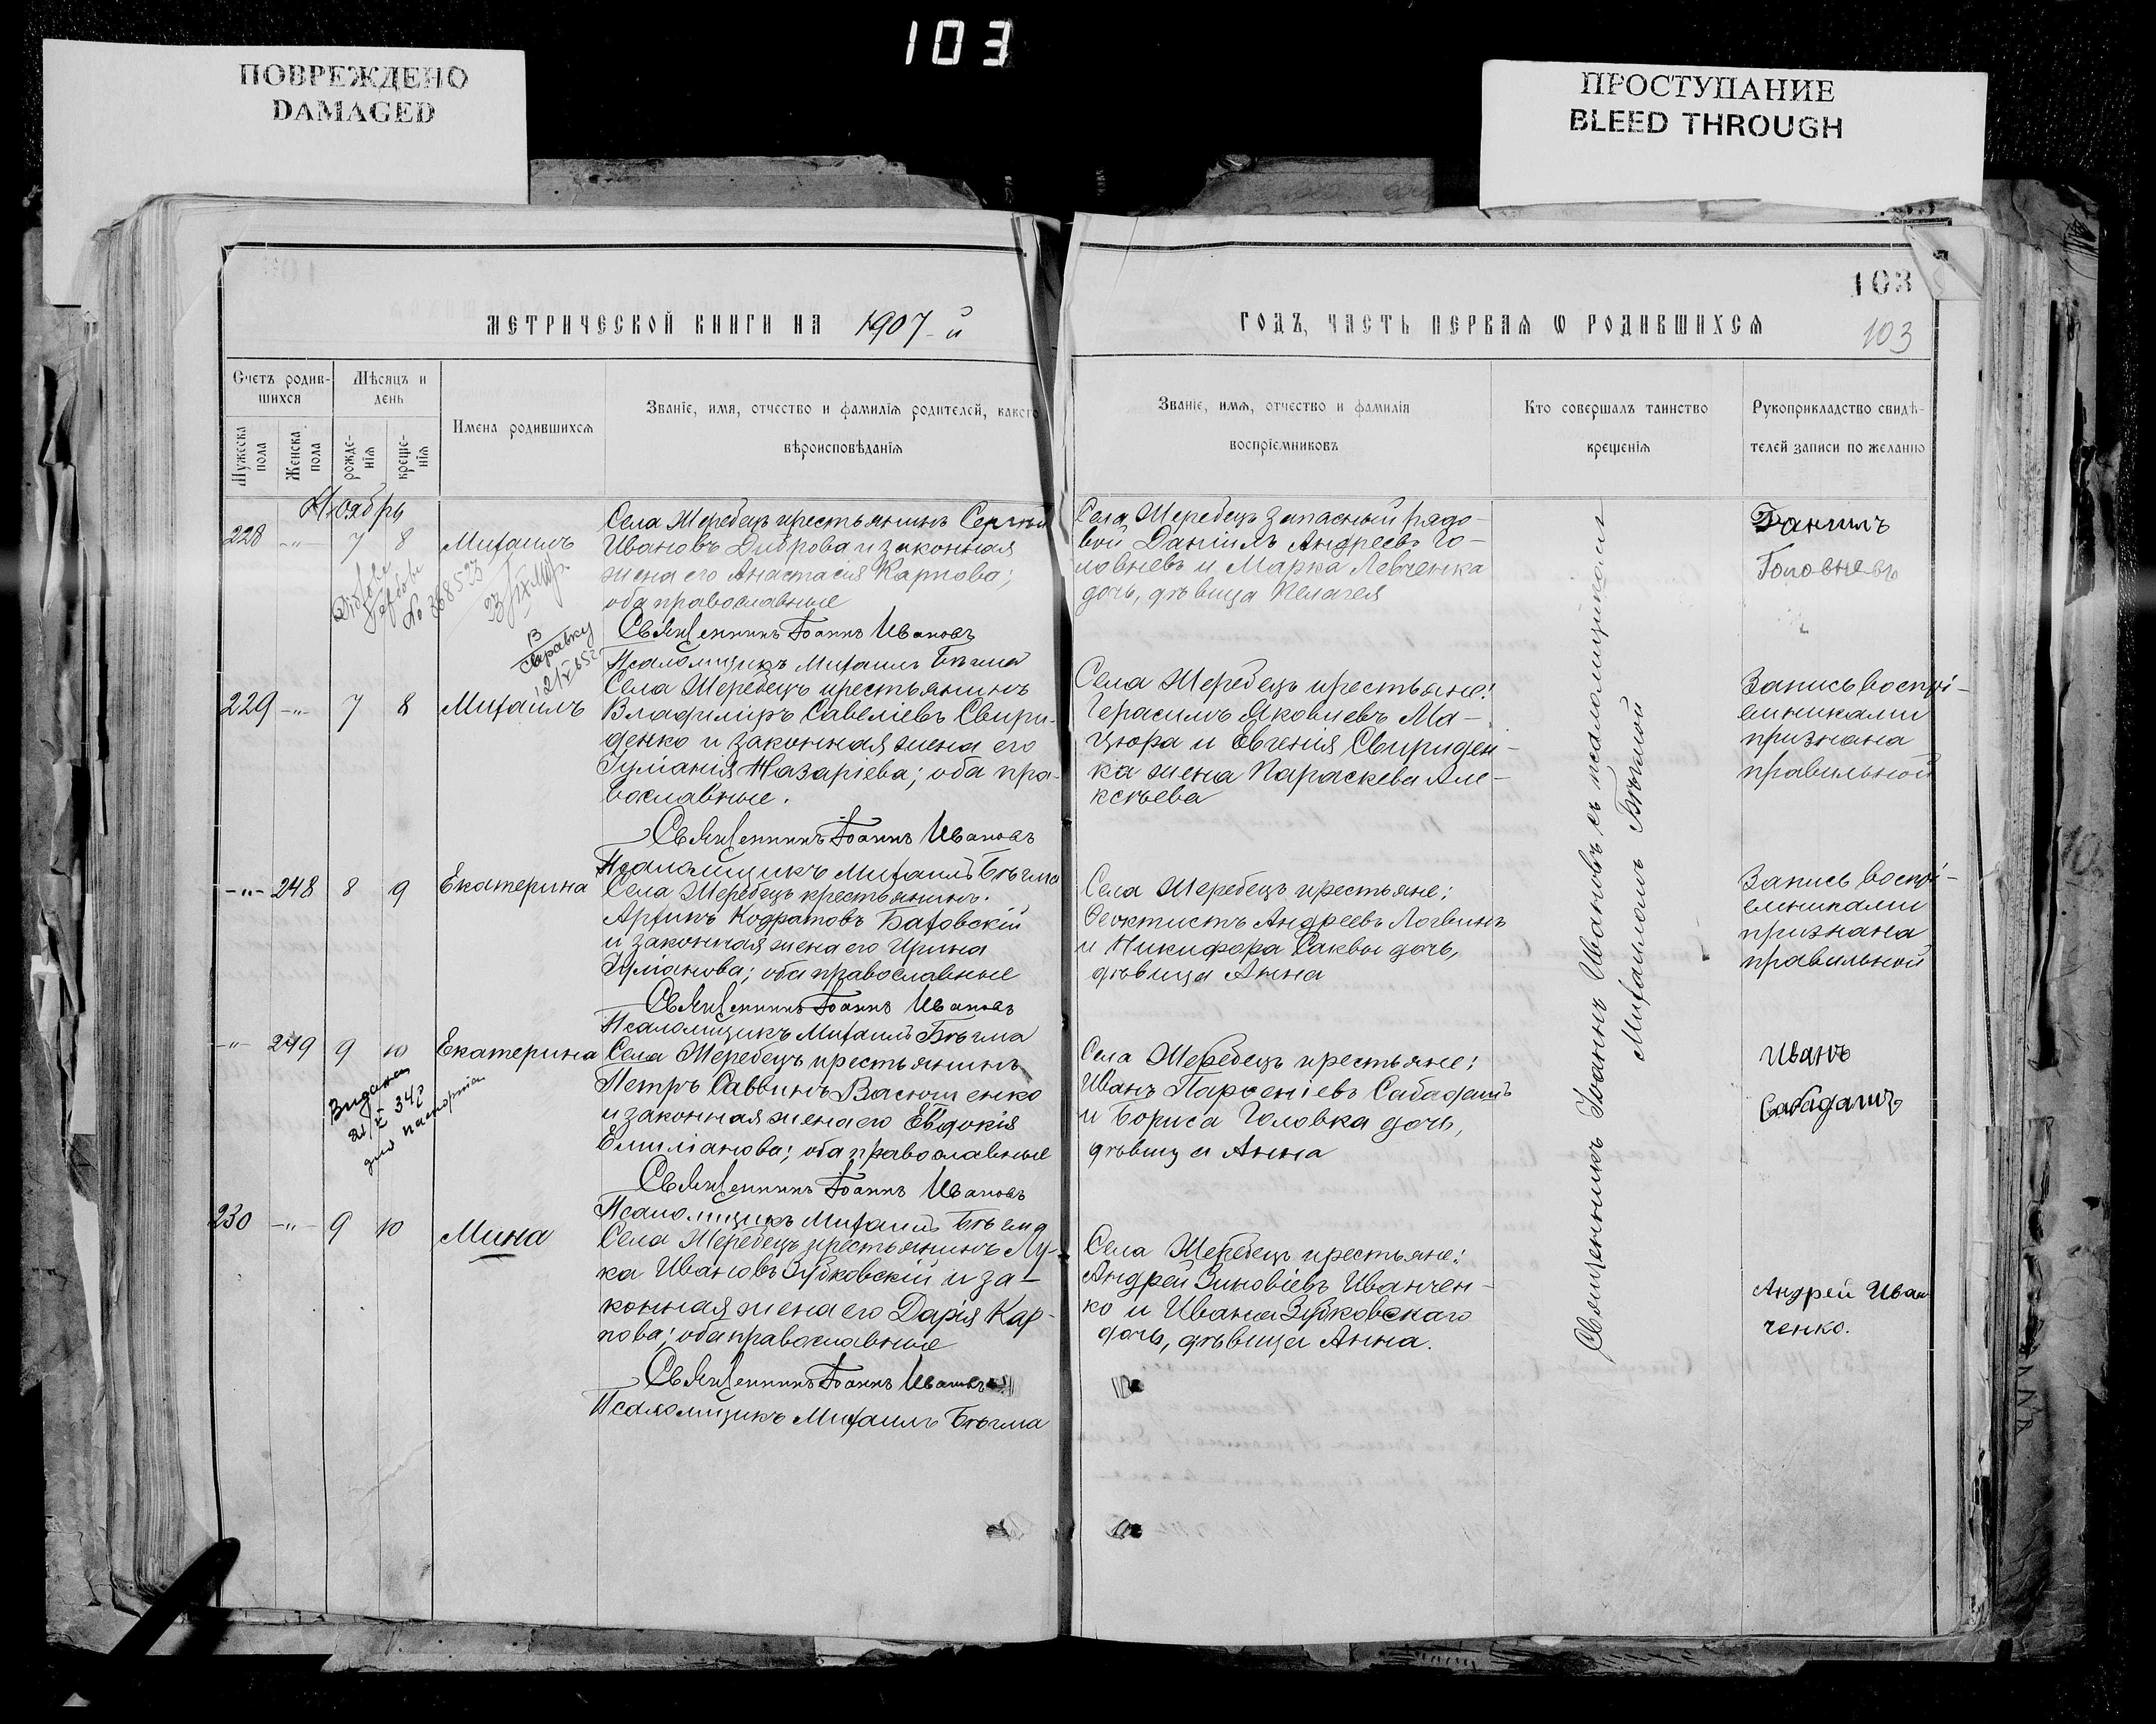 103
ПОВРЕЖДЕНО
DAMAGED
ПРОСТУПАНИЕ
BLEED THROUGH
МЕТРИЧЕСКОЙ КНИГИ НА 1907-й
Счетъ родив-
шихся
Мужеска
пола
Женска
пола
Мѣсяцъ и
день
рожде-
нія
креще-
нія
Имена родившихся
Званіе, имя, отчество и фамилія родителей, какого
вѣроисповѣданія
Ноябрь
228 -"- 7 8 Михаилъ
Села Жеребецъ крестьянинъ Сергѣй
Ивановъ Диброва и законная
жена его Анастасія Карпова;
оба православные
Священникъ Іоаннъ Ивановъ
Псаломщикъ Михаилъ Бѣгма
№ 368523
В
справку
229 -"- 7 8 Михаилъ
Села Жеребецъ крестьянинъ
Владиміръ Савеліевъ Свири-
денко и законная жена его
Іуліанія Назаріева; оба пра-
вославные.
Священникъ Іоаннъ Ивановъ
Псаломщикъ Михаилъ Бѣгма
-"- 248 8 9 Екатерина
Села Жеребецъ крестьянинъ
Архипъ Кодратовъ Баговскій
и законная жена его Ирина
Іуліанова; оба православные
Священникъ Іоаннъ Ивановъ
Псаломщикъ Михаилъ Бѣгма
-"- 249 9 10 Екатерина
Села Жеребецъ крестьянинъ
Петръ Саввинъ Васюшенко
и законная жена его Евдокія
Емиліанова; оба православные
Священникъ Іоаннъ Ивановъ
Псаломщикъ Михаилъ Бѣгма
230 -"- 9 10 Мина
Села Жеребецъ крестьянинъ Лу-
ка Ивановъ Зубковскій и за-
конная жена его Дарія Кар-
пова; оба православные
Священникъ Іоаннъ Ивановъ
Псаломщикъ Михаилъ Бѣгма
103
ГОДЪ, ЧАСТЬ ПЕРВАЯ Ѡ РОДИВШИХСЯ
103
Званіе, имя, отчество и фамилія
воспріемниковъ
Кто совершалъ таинство
крещенія
Рукоприкладство свидѣ-
телей записи по желанію
Села Жеребецъ запасный рядо-
вой Даніилъ Андреевъ Го-
ловневъ и Марка Левченка
дочь, дѣвица Пелагея
Даниилъ
Головневъ
Села Жеребецъ крестьяне:
Герасимъ Яковлевъ Ма-
цюра и Евгенія Свириден-
ка жена Параскева Але-
ксѣева
Запись воспрі-
емниками
признана
правильной
Села Жеребецъ крестьяне:
Ѳеоктистъ Андреевъ Логвинъ
и Никифора Саквы дочь,
дѣвица Анна
Запись воспрі-
емниками
признана
правильной
Села Жеребецъ крестьяне:
Иванъ Парѳеніевъ Сабадашъ
и Бориса Головка дочь,
дѣвица Анна
Иванъ
Сабадашъ
Села Жеребецъ крестьяне:
Андрей Зиновіевъ Иванчен-
ко и Ивана Зубковскаго
дочь, дѣвица Анна.
Андрей Иван
ченко.
Священникъ Іоаннъ Ивановъ съ псаломщикомъ
Михаиломъ Бѣгмой